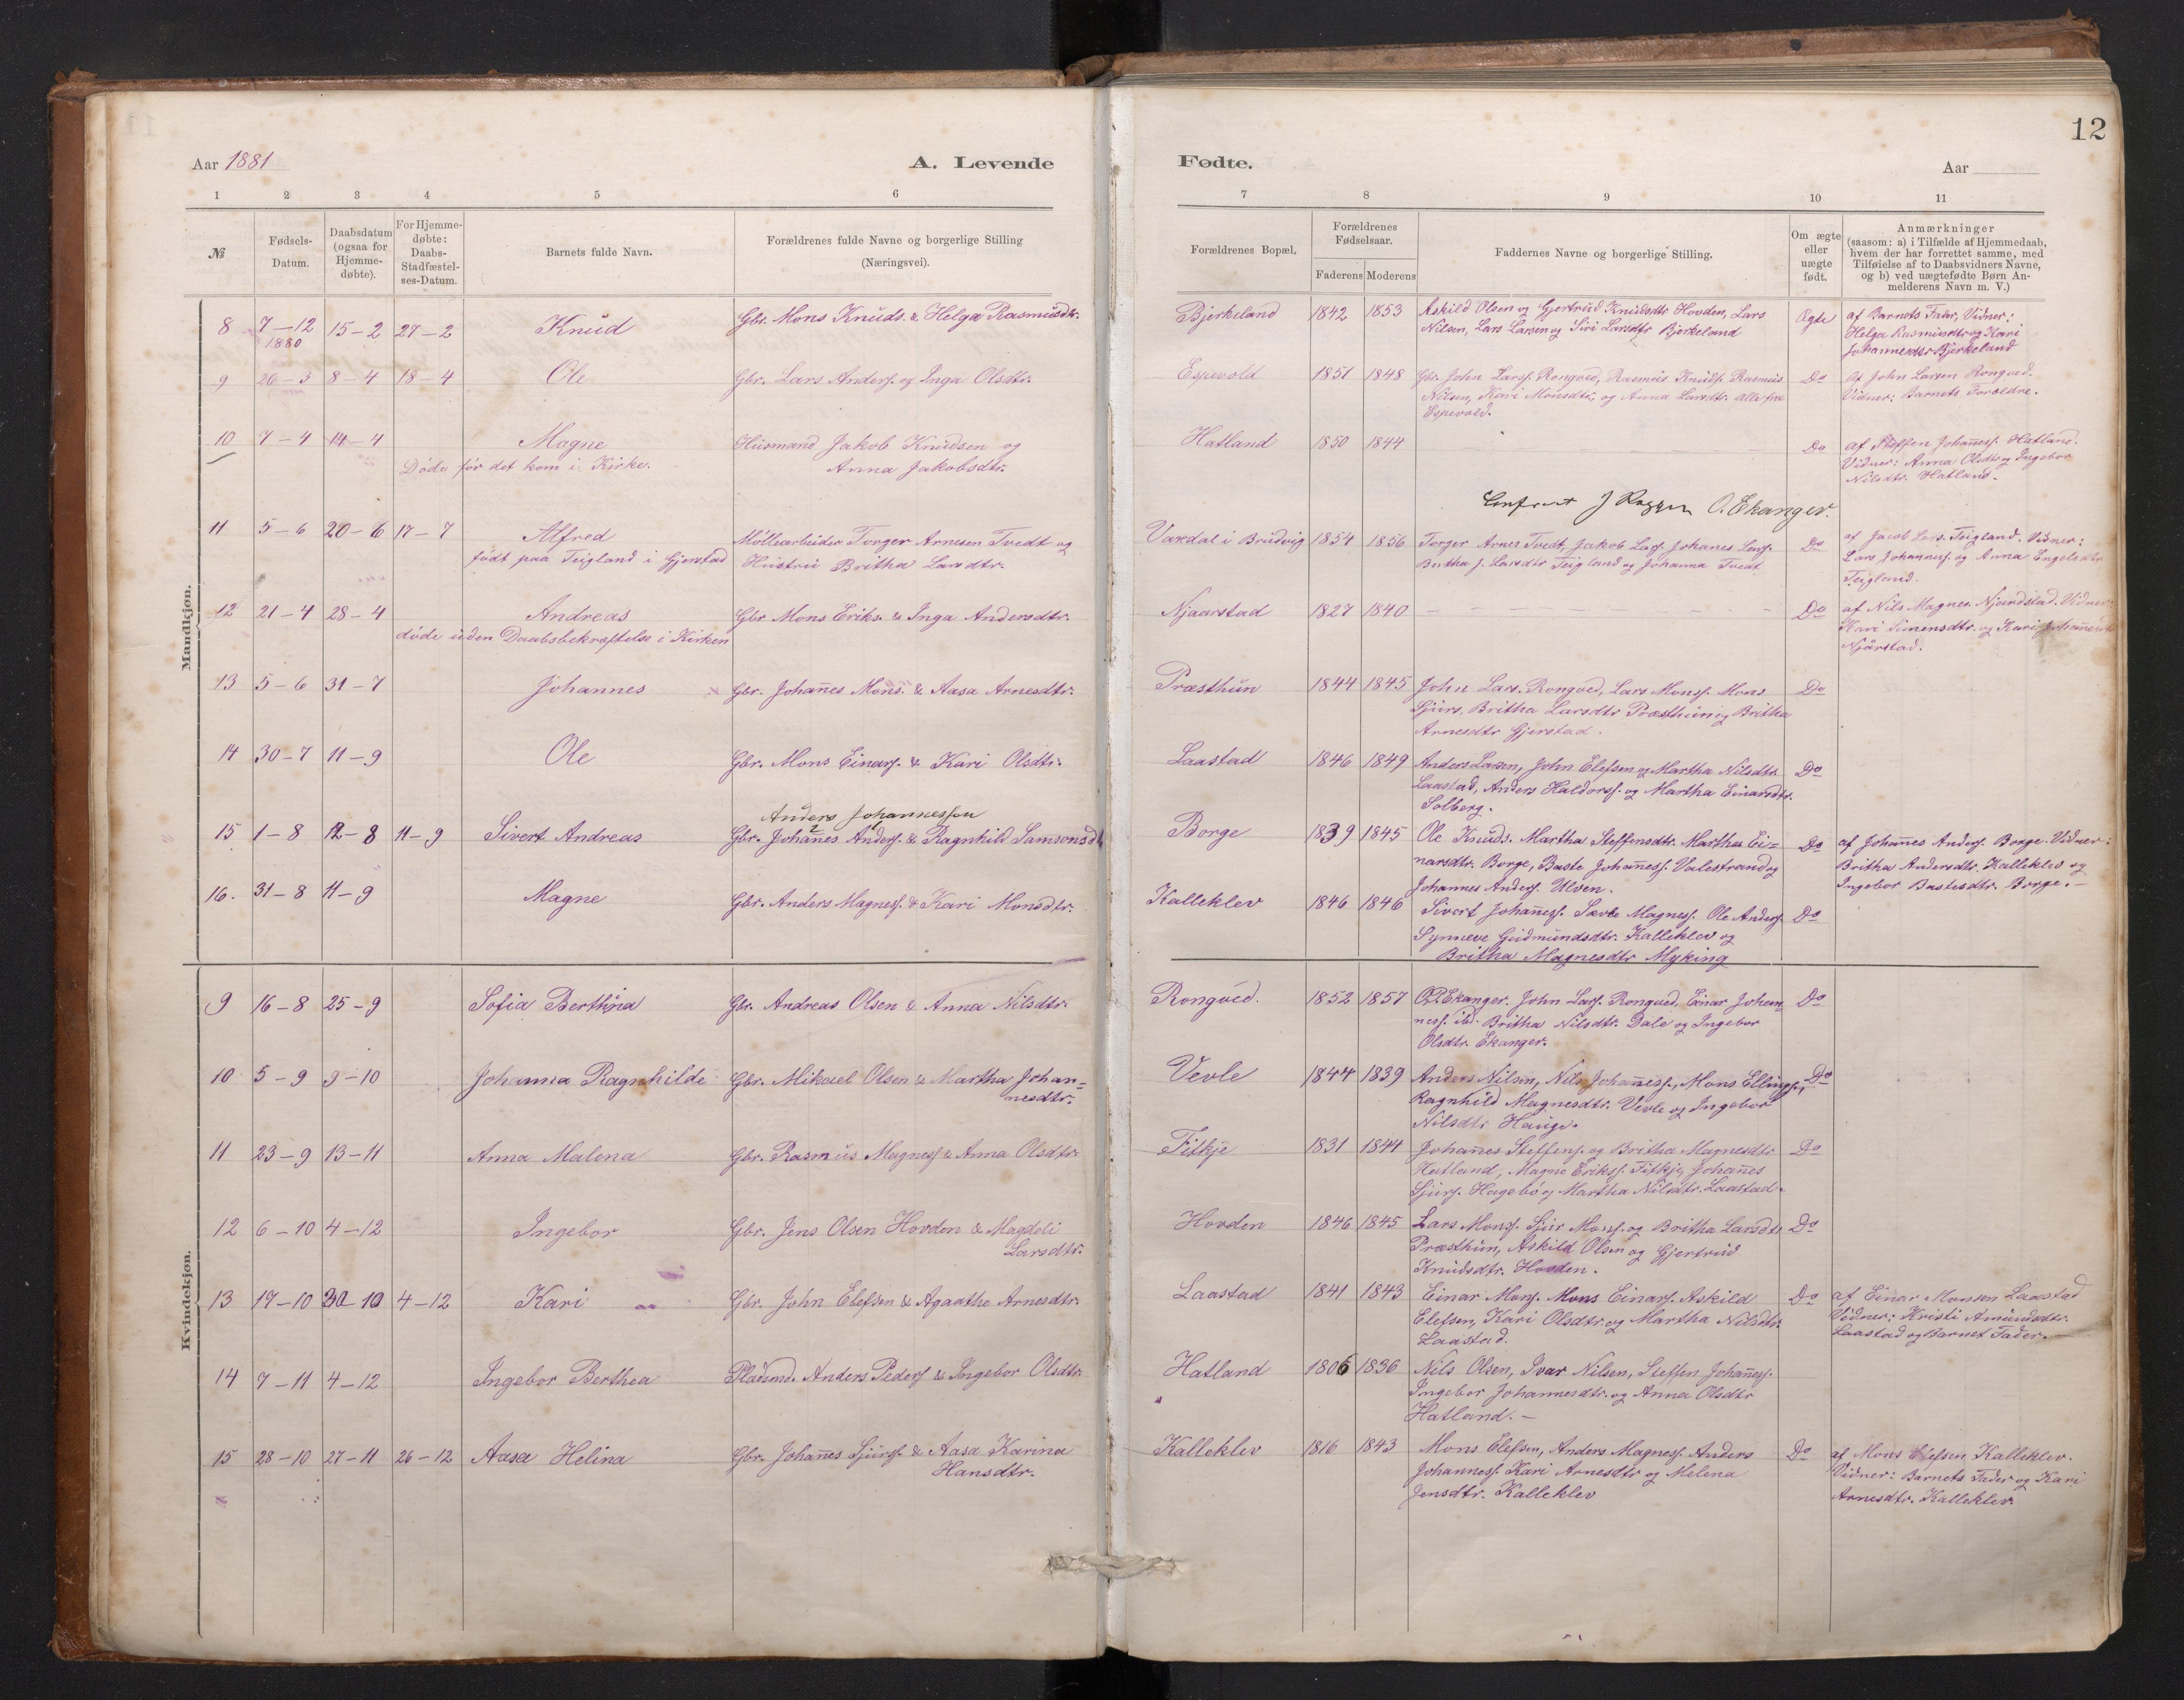 12
Aar 1881 A. Levende Fødte. Aar
1 2 3 4 5 6 7 8 9 10 11
№ Fødsels-Datum. Daabsdatum (ogsaa for Hjemme-døbte). For Hjemme-døbte: Daabs-Stadfæstel-ses-Datum. Barnets fulde Navn. Forældrenes fulde Navne og borgerlige Stilling (Næringsvei). Forældrenes Bopæl. Forældrenes Fødselsaar. Faderens Moderens Faddernes Navne og borgerlige Stilling. Om ægte eller uægte født. Anmærkninger (saasom: a) i Tilfælde af Hjemmedaab, hvem der har forrettet samme, med Tilføielse af to Daabsvidners Navne, og b) ved uægtefødte Børn An-melderens Navn m. V.)
Mandkjøn.
8 7–12 1880 15–2 27–2 Knud Gbr. Mons Knuds. & Helga Rasmusdtr. Bjerkeland 1842 1853 Askild Olsen og Gjertrud Knudsdtr Hovden, Lars Ægte af Barnets Fader, Vidner:
Nilsen, Lars Larsen og Siri Larsdtr Bjerkeland Helga Rasmusdtr og Kari
Johannesdtr Bjerkeland
9 26–3 8–4 18–4 Ole Gbr. Lars Anders. og Inga Olsdtr. Espevold 1851 1848 Gbr. John Larss. Rongved, Rasmus Knuds. Rasmus Do af John Larsen Rongved.
Nilsen, Kari Monsdtr, og Anna Larsdtr. alle fra Vidner: Barnets Forældre.
Espevold.
10 7–4 14–4 Magne Husmand Jakob Knudsen og Hatland 1850 1844 Do af Steffen Johaness. Hatland.
Døde før det kom i Kirke. Anna Jakobsdtr. Vidner: Anna Olsdtr og Ingebor
Nilsdtr. Hatland.
O. Ekanger.
11 5–6 20–6 17–7 Alfred Møllearbeider Torger Arnesen Tvedt og Vaxdal i Brudvig 1854 1856 Torger Arnes Tvedt, Jakob Lars. Johanes Lars. Do af Jacob Lars. Teigland. Vidner:
født paa Teigland i Gjerstad Hustru Britha Larsdtr. Britha J. Larsdtr Teigland og Johanna Tvedt Lars Johannes. og Anna Engelsdtr
Teigland.
12 21–4 28–4 Andreas Gbr Mons Eriks. & Inga Andersdtr. Njaarstad 1827 1840 Do af Nils Magnes. Njaarstad. Vidner:
døde uden Daabsbekræftelse i Kirken Kari Simensdtr. og Kari Johannesdtr
Njårstad.
13 5–6 31–7 Johannes Gbr. Johanes Mons. & Aasa Arnesdtr. Præsthun 1844 1845 John Lars. Rongved, Lars Monss. Mons Do
Sjurs, Britha Larsdtr Præsthun og Britha
Arnesdtr Gjerstad.
14 30–7 11–9 Ole Gbr. Mons Einars. & Kari Olsdtr. Laastad 1846 1849 Anders Larsen, John Elefsen og Martha Nilsdtr Do
Laastad, Anders Haldorss. og Martha Einarsdtr.
Solberg.
Anders Johannessen
15 1–8 12–8 11–9 Sivert Andreas Gbr. Johanes Anders. & Ragnhild Samsonsdtr Borge 1839 1845 Ole Knuds. Martha Steffensdtr. Martha Ei= Do af Johanes Anders. Borge. Vidner:
narsdtr. Borge, Baste Johaness. Valestrand og Britha Andersdtr. Kalleklev og
Johannes Anders. Ulven. Ingebor Bastesdtr. Borge.–
16. 31–8 11–9 Magne Gbr. Anders Magnes. & Kari Monsdtr. Kalleklev 1846 1846 Sivert Johaness. Sævle Magnes. Ole Anders. Do
Synneve Gudmundsdtr. Kalleklev og
Britha Magnesdtr Myking
Kvindekjøn.
9 16–8 25–9 Sofia Berthina Gbr. Andreas Olsen & Anna Nilsdtr. Rongved. 1852 1857 O.P. Ekanger. John Lars. Rongved, Einar Johan Do
ness. ibd. Britha Nilsdtr. Dale og Ingebor
Olsdtr. Ekanger.
10 5–9 9–10 Johanna Ragnhilde Gbr. Mikael Olsen & Martha Johan= Vevle 1844 1839 Anders Nilsen, Nils Johaness., Mons Ellings., Do
nesdtr. Ragnhild Magnesdtr. Vevle og Ingebor
Nilsdtr Hauge.
11 23–9 13–11 Anna Malena Gbr. Rasmus Magness & Anna Olsdtr. Fitkje 1831 1844 Johanes Steffens. og Britha Magnesdtr Do
Hatland, Magne Erikss. Fitkje, Johanes
Sjurs. Hagebø og Martha Nilsdtr. Laastad.
12 6–10 4–12 Ingebor Gbr. Jens Olsen Hovden & Magdeli Hovden 1846 1845 Lars Monss. Sjur Monss. og Britha Larsdtr Do
Larsdtr. Præsthun, Askild Olsen og Gjertrud
Knudsdtr. Hovden.
13 17–10 30–10 4–12 Kari Gbr. John Elefsen & Agaathe Arnesdtr. Laastad 1841 1843 Einar Mons. Mons Einars. Askild Do af Einar Monsen Laastad
Elefsen, Kari Olsdtr. og Martha Nilsdtr. Vidner: Kristi Amundsdtr.
Laastad. Laastad og Barnet Fader.–
14 7–11 4–12 Ingebor Berthea Pladsmd. Anders Peders & Ingebor Olsdtr. Hatland 1806 1836 Nils Olsen, Ivar Nilsen, Steffen Johaness.
Ingebor Johannesdtr. og Anna Olsdtr
Hatland.–
15 28–10 27–11 26–12 Aasa Helina Gbr. Johanes Sjurs. & Aasa Karina Kalleklev 1816 1843 Mons Elefsen, Anders Magnes. Anders Do af Mons Elefsen Kalleklev.
Hansdtr. Johannes. Kari Arnesdtr og Melena Vidner: Barnets Fader og Kari
Jensdtr. Kalleklev Arnesdtr. Kalleklev.